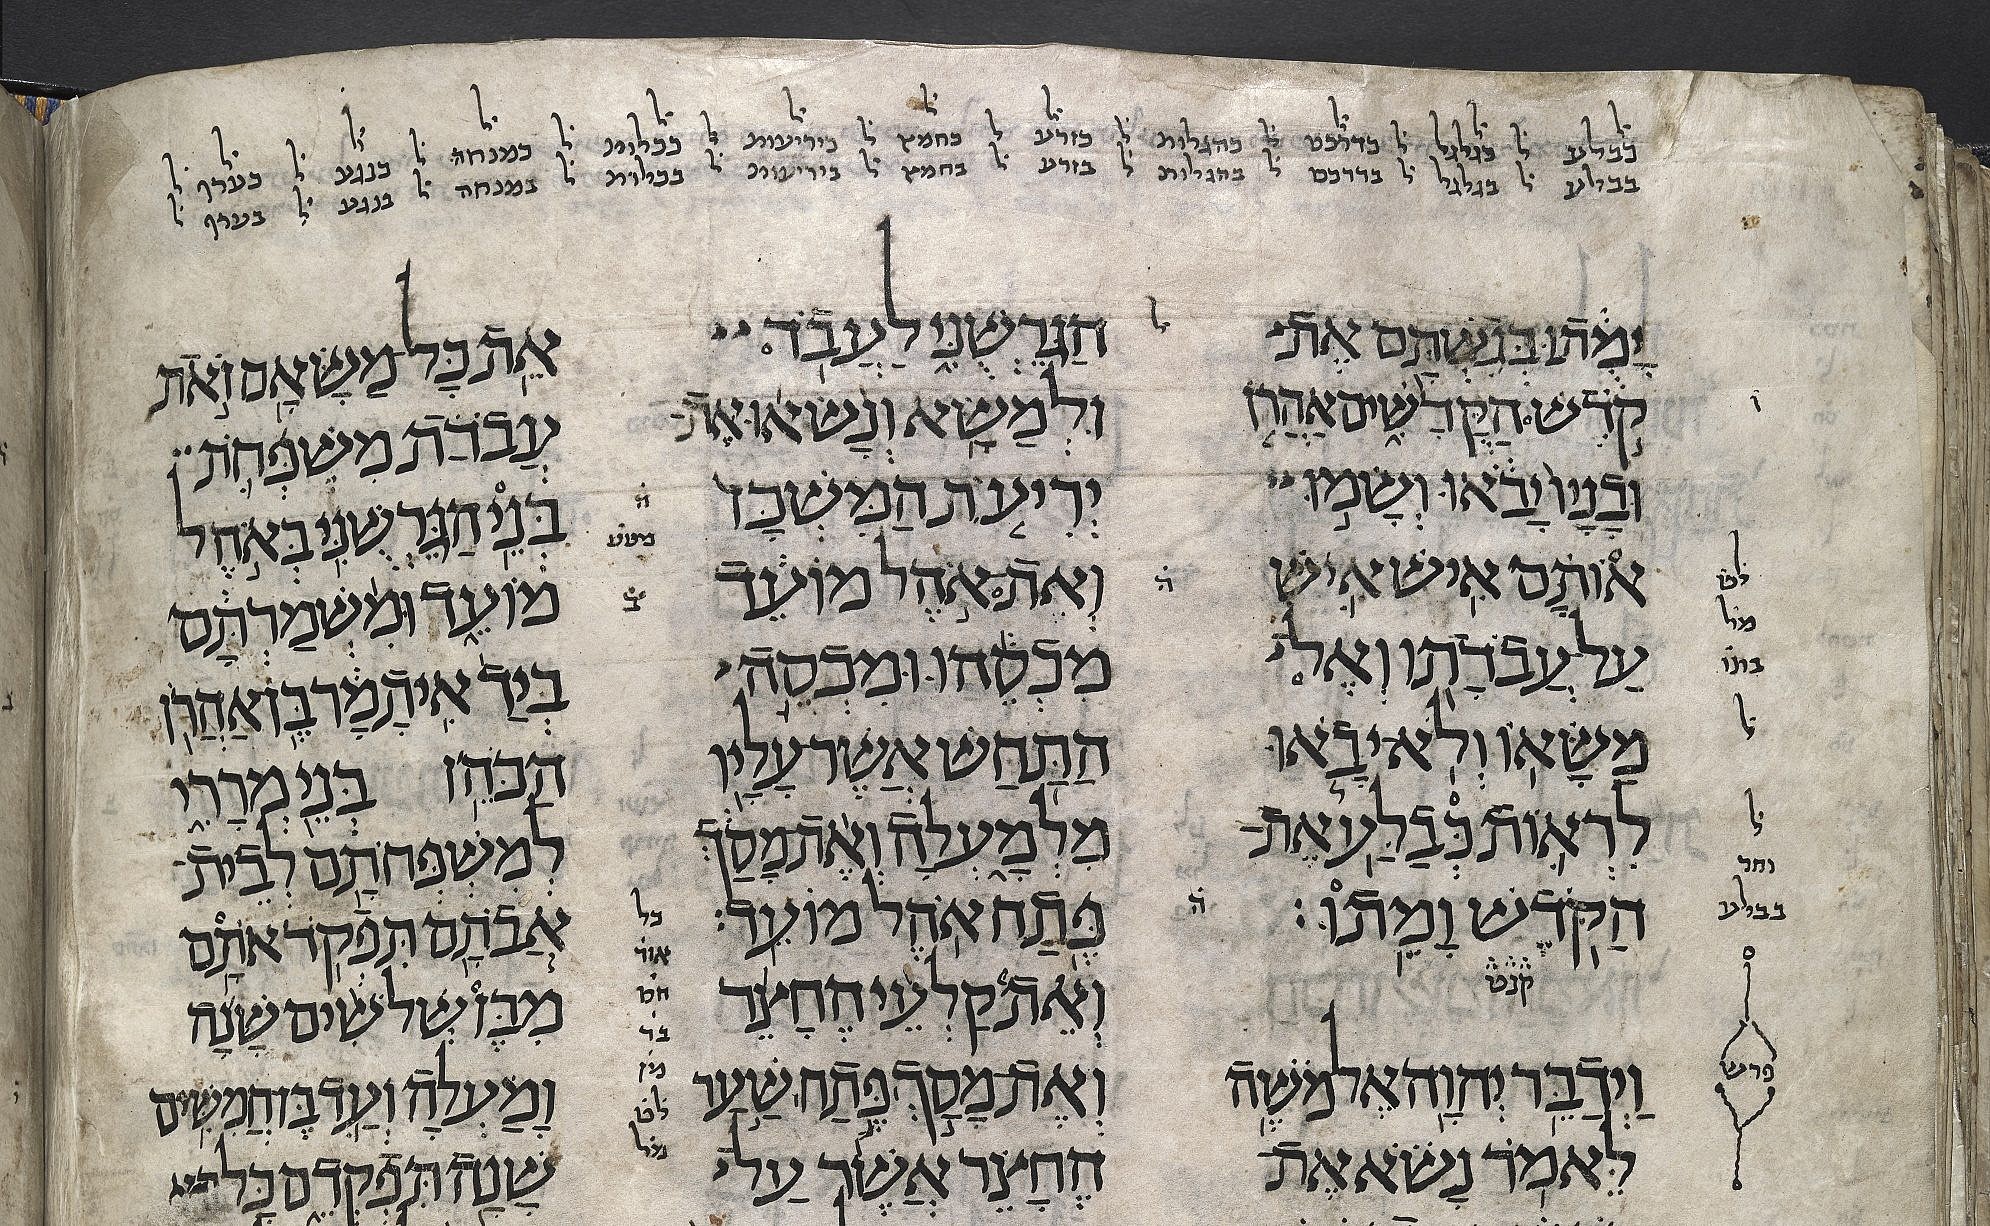 כבלע ל כגלגל ל כדרכם ל כהגלות ל כזרע ל כחמץ ל כיריעות ל ככלות ל כמנחה ל כנגע ל כערף ל
בבלע ל בגלגל ל בדרכם ל בהגלות ל בזרע ל בחמץ ל ביריעות ל בכלות ל במנחה ל בנגע ל בערף ל
ומתו בגשתם את
קדש הקדשים אהרן
ובניו יבאו ושמו
אותם איש איש
על עבדתו ואל
משאו ולא יבאו
לראות כבלע את
הקדש ומתו:
קנט
וידבר יהוה אל משה
לאמר נשא את
ו
לט
מל
בתו
ל
ל
וחד
בבולע
פרש
הגרשני לעבד
ולמשא ונשאו את
יריעת המשכן
ואת אהל מועד
מכסהו ומכסה
התחש אשר עליו
מלמעלה ואת מסך
פתח אהל מועד:
ואת קלעי החצר
ואת מסך פתח שער
החצר אשר על
ל
ה
ה
את כל משאם ואת
עבדת משפחת
בני הגרשני באהל
מועד ומשמרתם
ביד איתמר בן אהרן
הכהן בני מררי
למשפחתם לבית
אבתם תפקד אתם
מבן שלשים שנה
ומעלה ועד בן חמשים
שנה תפקדם כל
ה
כל
אור
חס
בר
מן
לט
מל